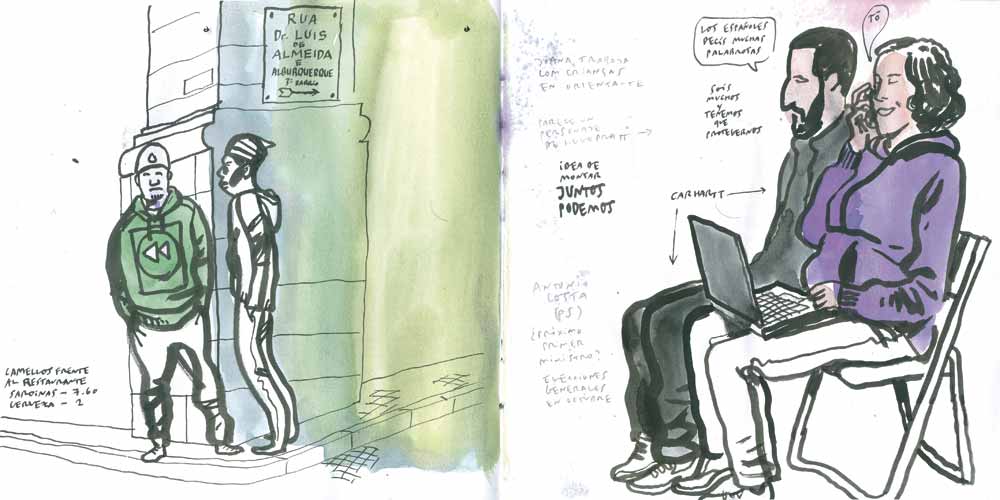 RUA
Dr. LUIS
DE
ALMEIDA
E
ALBURQUERQUE
CAMELLOS FRENTE
AL RESTAURANTE
SARDINAS – 7.60
CERVEZA – 2
JOANA, TRABAJA
COM CRIANÇAS
EN ORIENTA-TE
PARECE UN
PERSONAJE
DE HUGO PRATT →
IDEA DE
MONTAR
JUNTOS
PODEMOS
ANTONIO
COSTA
(PS)
¿PRÓXIMO
PRIMER
MINISTRO?
ELECCIONES
GENERALES
EN OCTUBRE
LOS ESPAÑOLES
DECÍS MUCHAS
PALABROTAS
SOIS
MUCHOS
Y
TENEMOS
QUE
PROTEGERNOS
CARHARTT